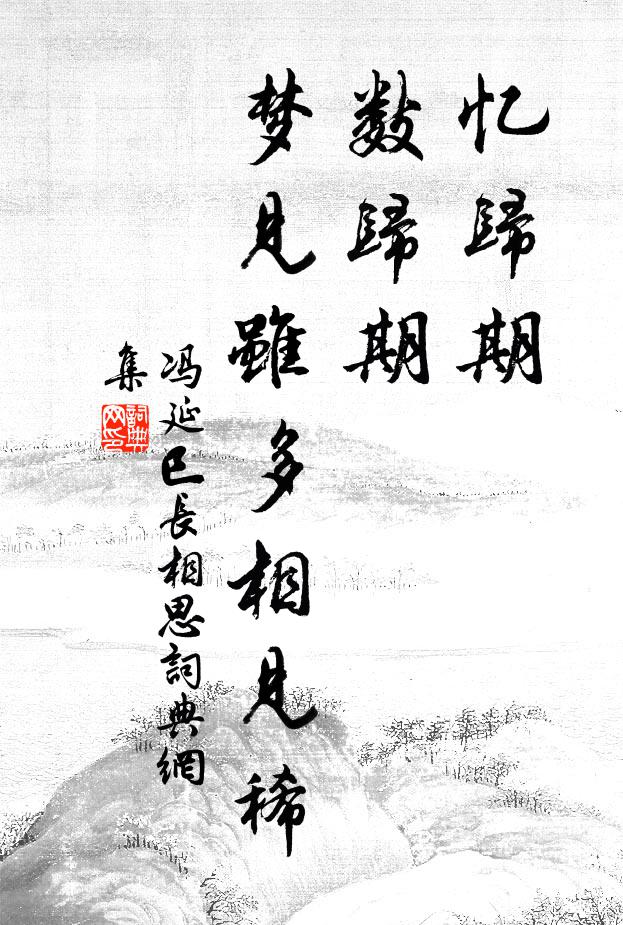 忆歸期
數歸期
梦見雖多相見稀
冯延巳長相思詞典網
集
詞典网印